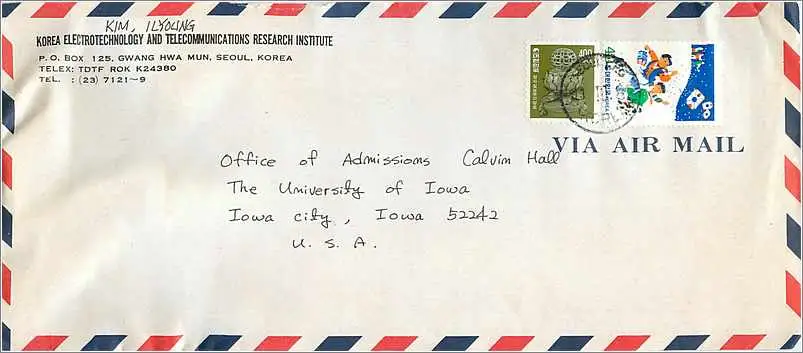 KIM, ILYOUNG
KOREA ELECTROTECHNOLOGY AND TELECOMMUNICATIONS RESEARCH INSTITUTE
P.O. BOX 125, GWANG HWA MUN, SEOUL, KOREA
TELEX: TDTF ROK K24380
TEL. : (23) 7121~9
400
VIA AIR MAIL
Office of Admissions Calvin Hall
The University of Iowa
Iowa city, Iowa 52242
U. S. A.